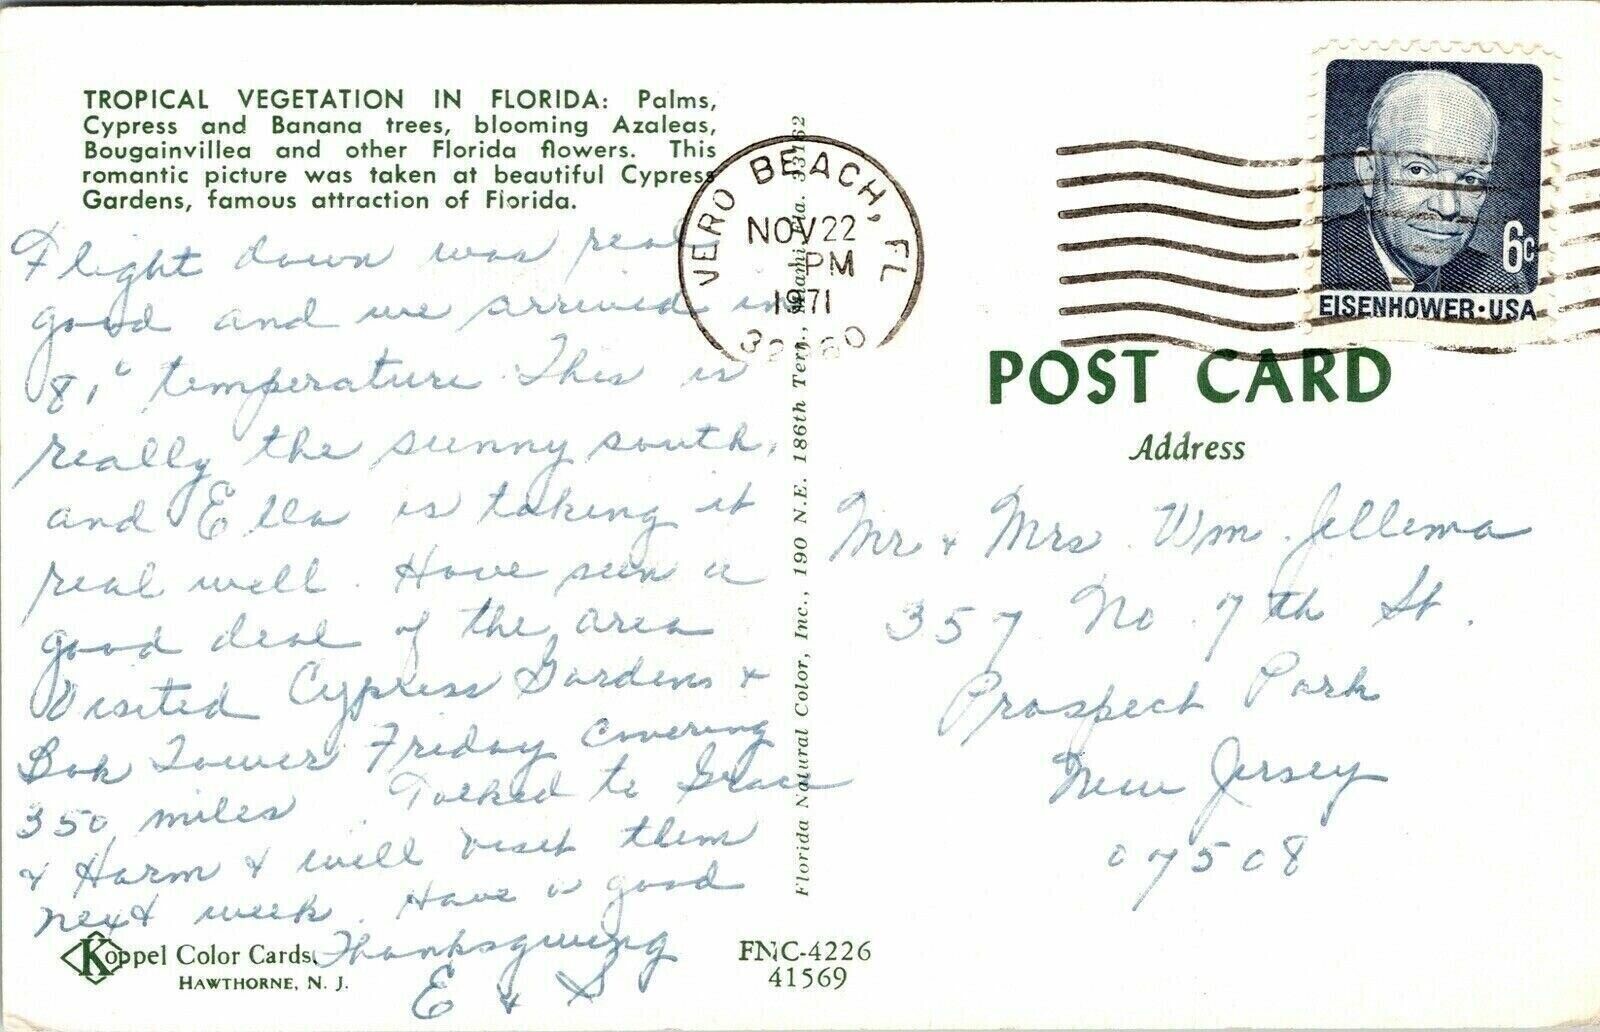 TROPICAL VEGETATION IN FLORIDA: Palms,
Cypress and Banana trees, blooming Azaleas,
Bougainvillea and other Florida flowers. This
romantic picture was taken at beautiful Cypress
Gardens, famous attraction of Florida.
Flight down was real
good and we arrived in
81° temperature. This is
really the sunny south,
and Ella is taking it
real well. Have seen a
good deal of the area
Visited Cypress Gardens &
Bok Tower Friday covering
350 miles. Talked to Grace
& Harm & will visit them
next week. Have a good
Thanksgiving
E & S
Koppel Color Cards.
HAWTHORNE, N. J.
FNC-4226
41569
Florida Natural Color, Inc., 190 N.E. 186th Terr., Miami, Fla. 33162
VERO BEACH, FL
NOV 22
PM
1971
6c
EISENHOWER·USA
POST CARD
Address
Mr & Mrs. Wm. Jellema
357 No. 7th St.
Prospect Park
New Jersey
07508